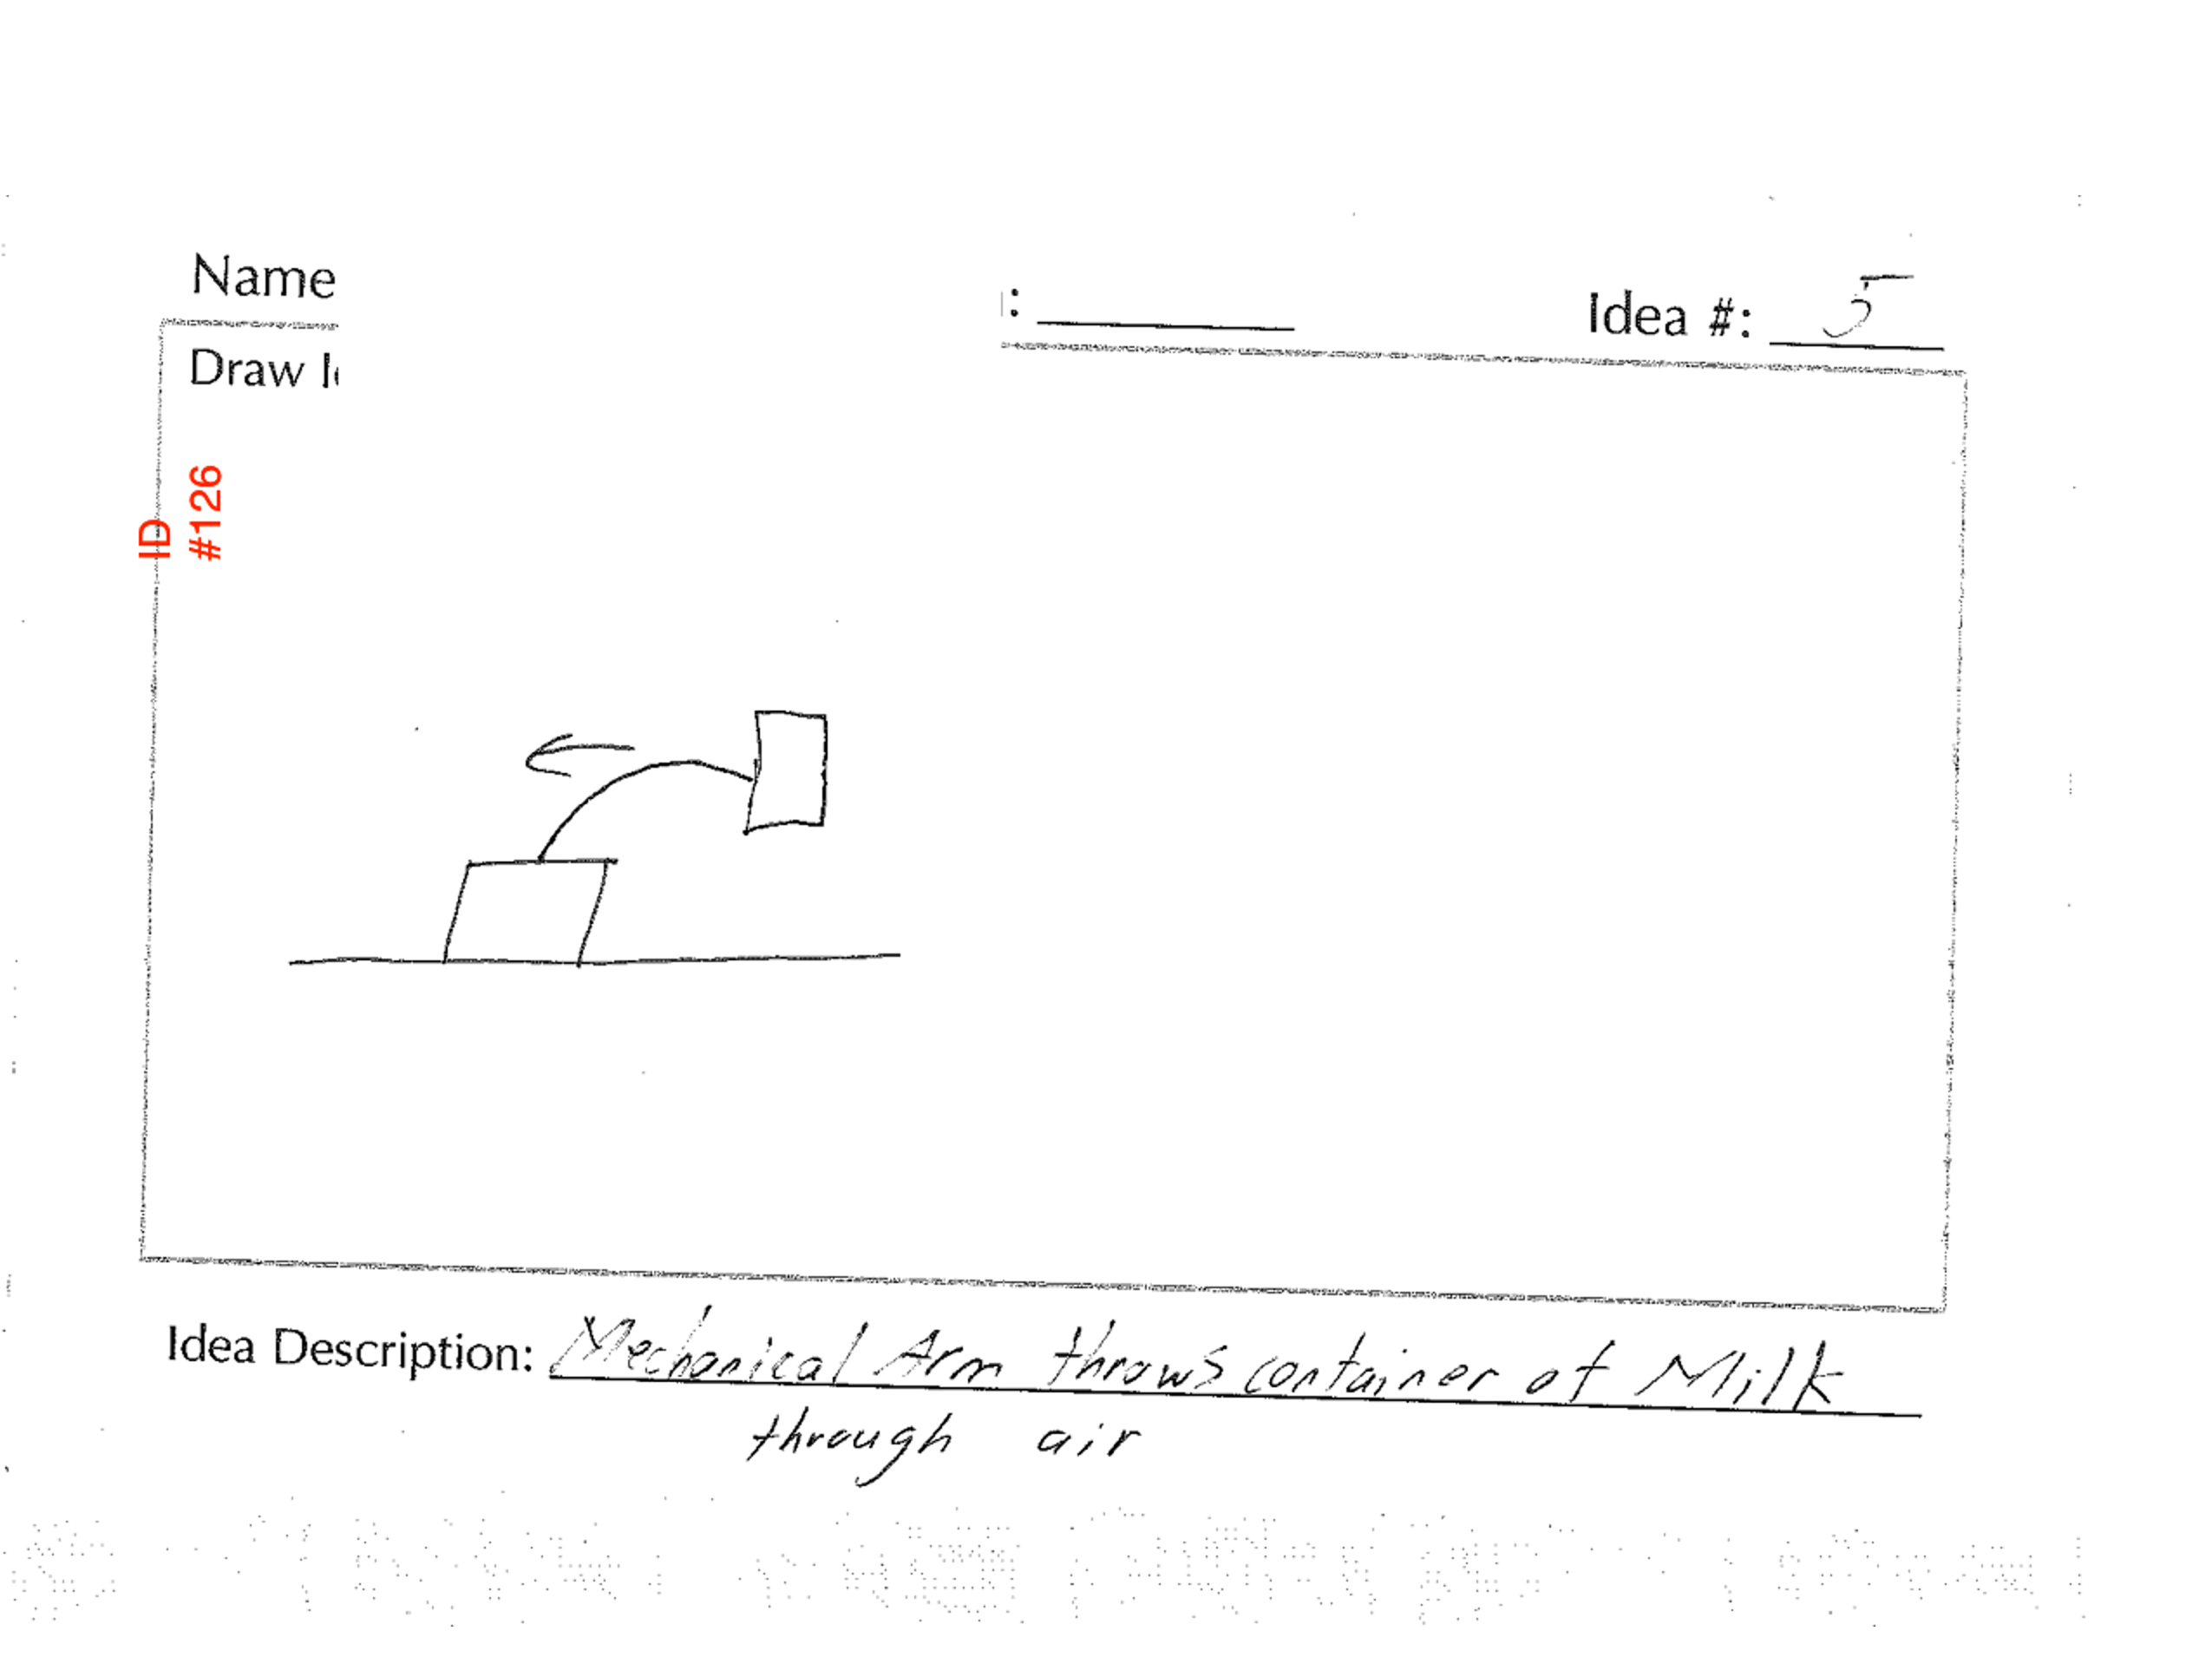 Name
: Idea #: 5
Draw
ID
#126
Idea Description: Mechanical Arm throws container of Milk
through air